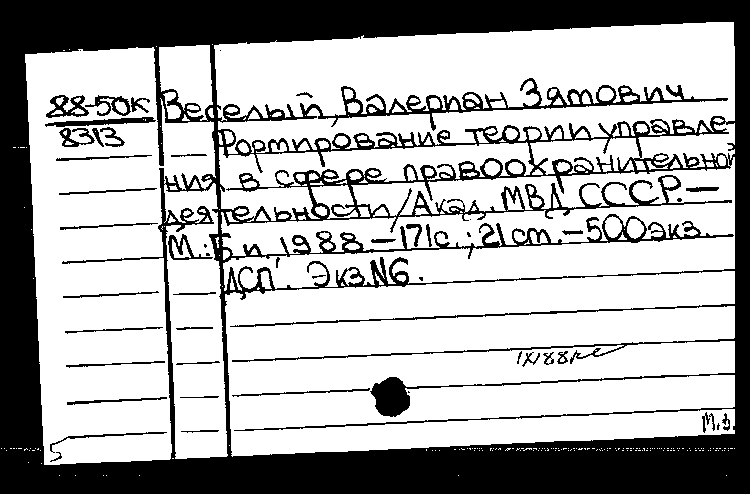 88-50к Веселый, Валериан Зямович.
8313 Формирование теории управле-
ния в сфере правоохранительной
деятельности/Акад. МВД СССР.—
М.: Б.и., 1988.—171с.; 21 см.—500экз.
ДСП. Экз.N6.
IX88
М.Ф.
5